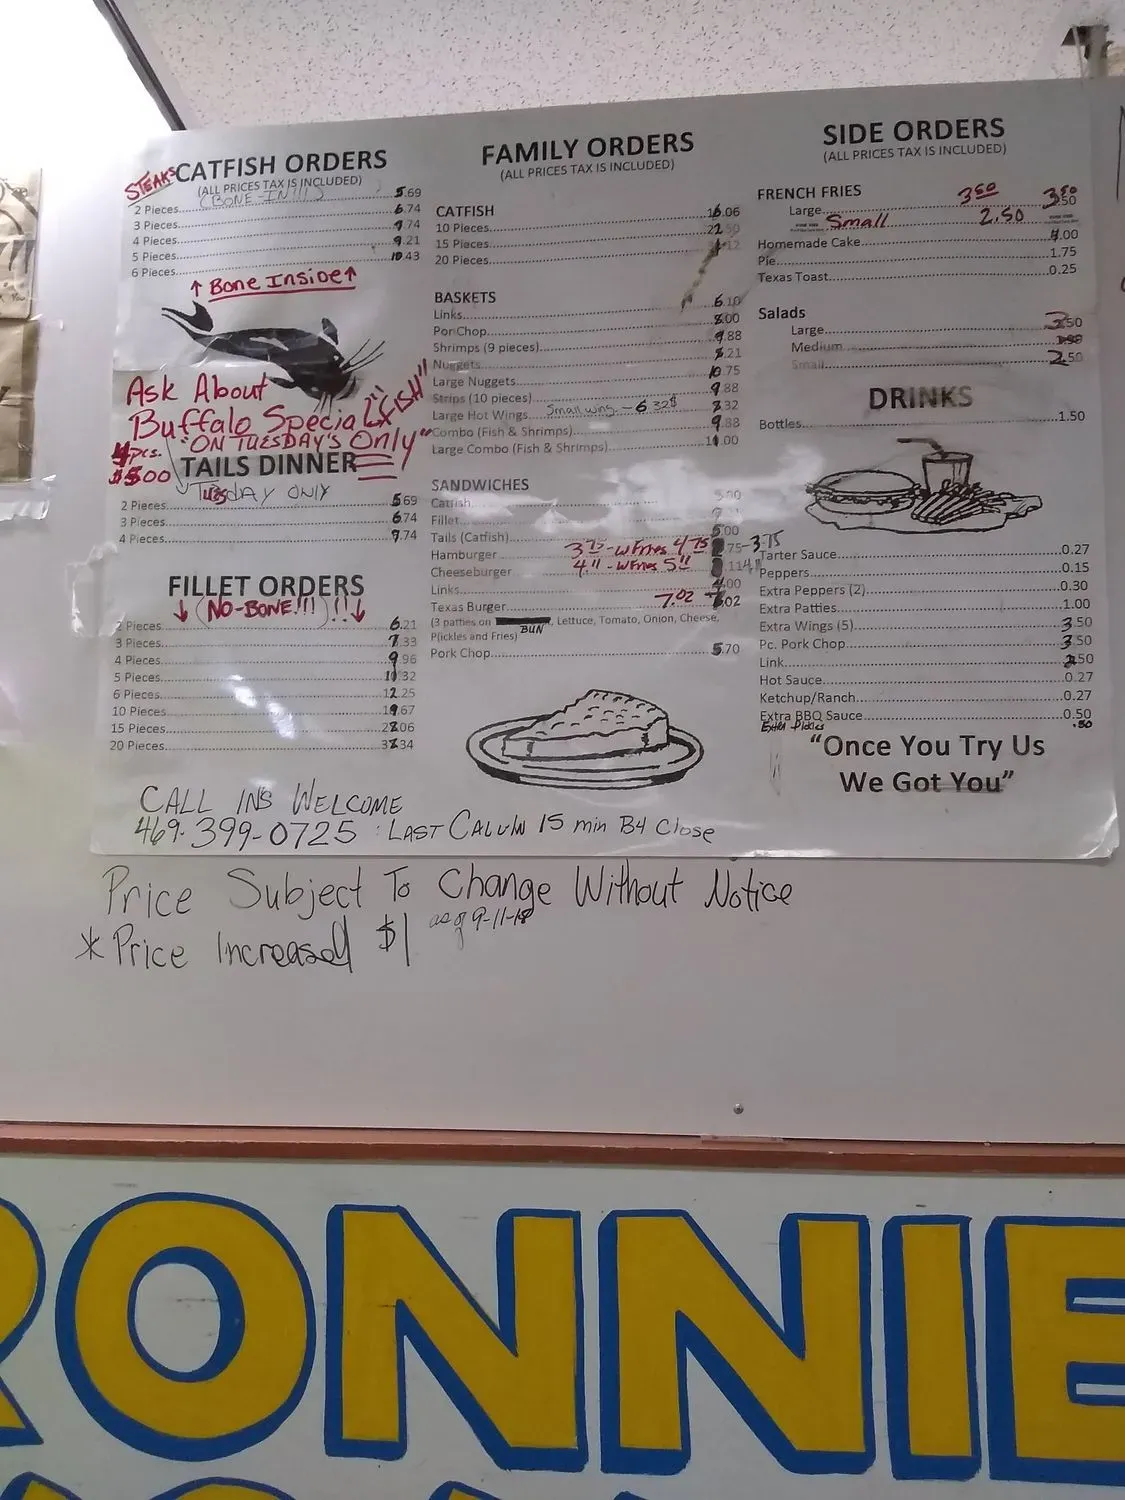 STEAKS CATFISH ORDERS
(ALL PRICES TAX IS INCLUDED)
(BONE-IN!!!)
2 Pieces 5.69
3 Pieces 6.74
4 Pieces 9.74
5 Pieces 9.21
6 Pieces 10.43
↑ Bone Inside ↑
Ask About
Buffalo Special "FISH"
"ON TUESDAY'S Only"
4pcs.
$5.00
TAILS DINNER
TUESDAY ONLY
2 Pieces 5.69
3 Pieces 6.74
4 Pieces 9.74
FILLET ORDERS
↓ (NO-BONE!!!) !!↓
2 Pieces 6.21
3 Pieces 7.33
4 Pieces 9.96
5 Pieces 11.32
6 Pieces 12.25
10 Pieces 19.67
15 Pieces 28.06
20 Pieces 38.34
FAMILY ORDERS
(ALL PRICES TAX IS INCLUDED)
CATFISH
10 Pieces 16.06
15 Pieces 22.50
20 Pieces
BASKETS
Links 6.10
Por Chop 8.00
Shrimps (9 pieces) 9.88
Nuggets 8.21
Large Nuggets 10.75
Strips (10 pieces) 9.88
Large Hot Wings Small wing - 6.32$ 8.32
Combo (Fish & Shrimps) 9.88
Large Combo (Fish & Shrimps) 11.00
SANDWICHES
Catfish
Fillet
Tails (Catfish) 5.00
Hamburger 3.75 - w Fries 4.75 75 - 3.75
Cheeseburger 4.11 - w Fries 5.11 4.11
Links 4.00
Texas Burger 7.02 7.02
(3 patties on BUN, Lettuce, Tomato, Onion, Cheese,
P(ickles and Fries)
Pork Chop 5.70
SIDE ORDERS
(ALL PRICES TAX IS INCLUDED)
FRENCH FRIES
Large 3.50 3.50
Small 2.50
Homemade Cake 4.00
Pie 1.75
Texas Toast 0.25
Salads
Large 3.50
Medium
Small 2.50
DRINKS
Bottles 1.50
Tarter Sauce 0.27
Peppers 0.15
Extra Peppers (2) 0.30
Extra Patties 1.00
Extra Wings (5) 3.50
Pc. Pork Chop 3.50
Link 2.50
Hot Sauce 0.27
Ketchup/Ranch 0.27
Extra BBQ Sauce 0.50
Extra Pickles .50
"Once You Try Us
We Got You"
CALL INS WELCOME
469-399-0725 : LAST CALL IN 15 min B4 Close
Price Subject To Change Without Notice
* Price Increased $1 as of 9-11-18
RONNIE